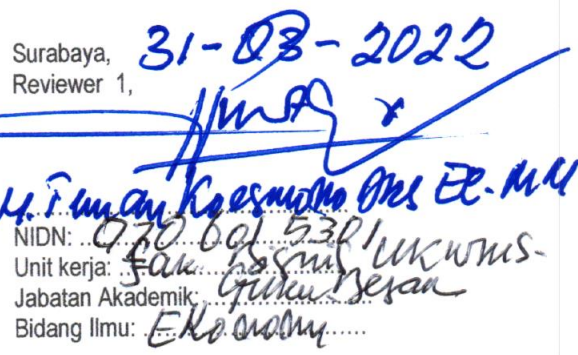 Surabaya, 31-03-2022
Reviewer 1,
H. Teman Koesmono Drs Ec. MM
NIDN: 0706015301
Unit kerja: Fak Bisnis UKWMS-
Jabatan Akademik: Guru Besar
Bidang Ilmu: Ekonomi